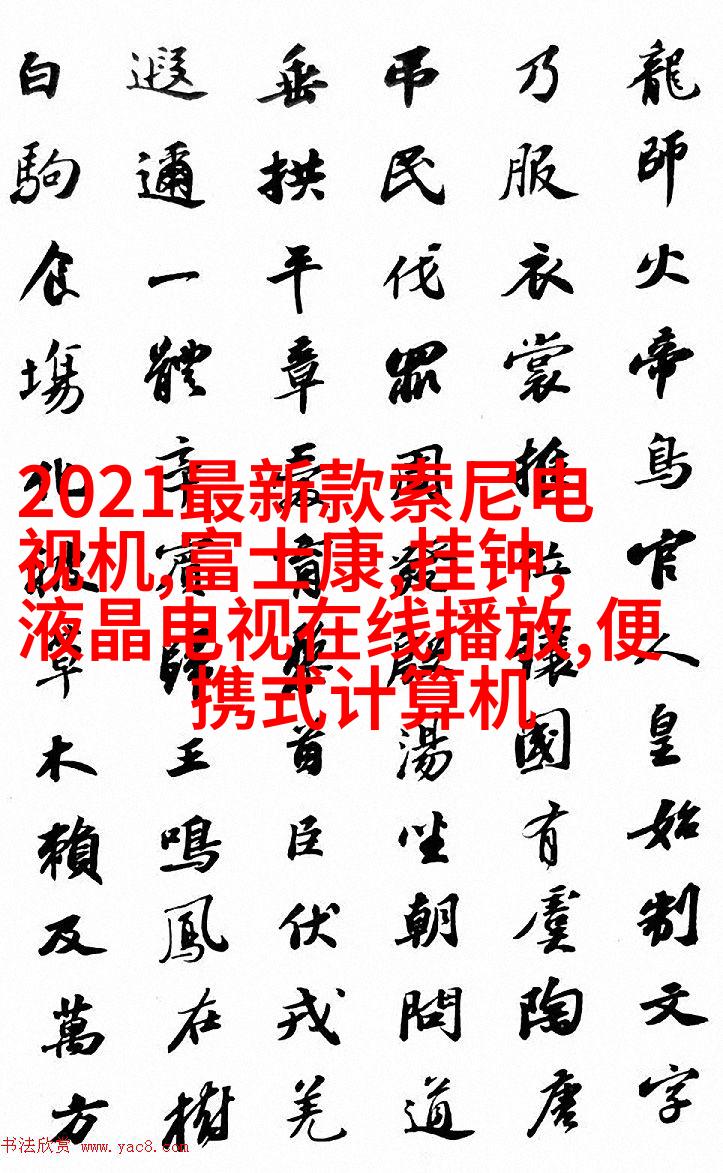 龍師火帝鳥官人皇始制文字
乃服衣裳推位讓國有虞陶唐
吊民伐罪周發殷湯坐朝問道
垂拱平章愛育黎首臣伏戎羌
遐邇一體率賓歸王鳴鳳在樹
白駒食塲化被草木賴及萬方
2021最新款索尼电
视机,富士康,挂钟,
液晶电视在线播放,便
携式计算机
书法欣赏 www.yac8.com